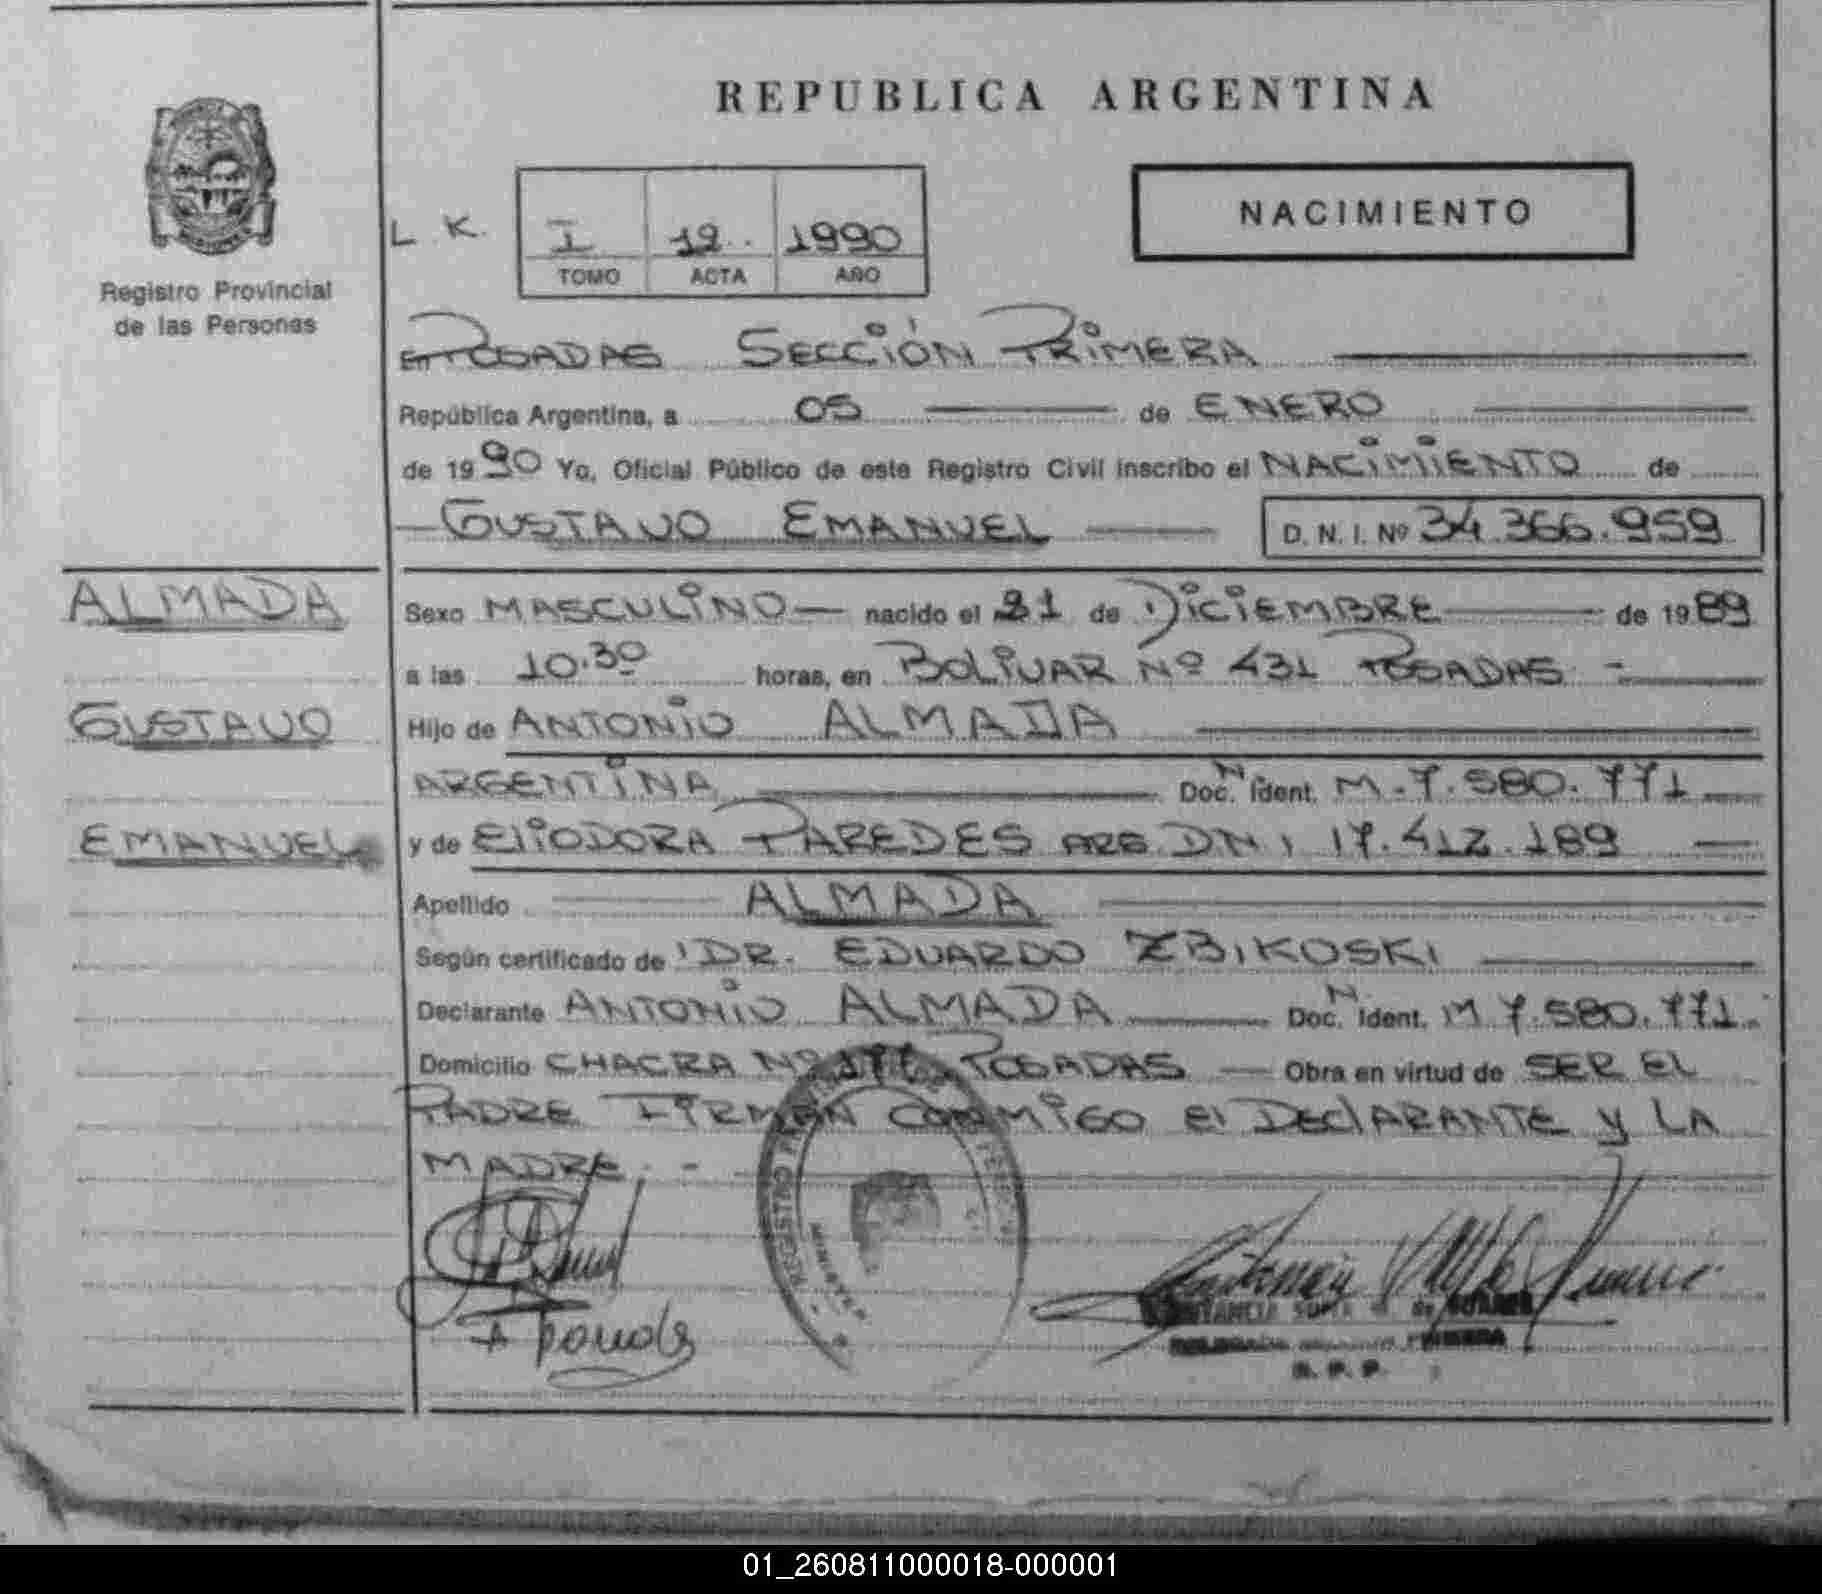 REPUBLICA ARGENTINA
Registro Provincial
de las Personas
L. K.
I 19 1990
TOMO ACTA AÑO
NACIMIENTO
En POSADAS SECCIÓN PRIMERA
República Argentina, a 05 de ENERO
de 1990 Yo, Oficial Público de este Registro Civil inscribo el NACIMIENTO de
GUSTAVO EMANUEL D. N. I. Nº 34.366.959
ALMADA
GUSTAVO
EMANUEL
Sexo MASCULINO nacido el 21 de DICIEMBRE de 1989
a las 10.30 horas, en BOLIVAR Nº 431 POSADAS
Hijo de ANTONIO ALMADA
ARGENTINA Doc. N Ident. M. 7.580.771
y de EliODORA PAREDES ARG. DNI 17.412.189
Apellido ALMADA
Según certificado de DR. EDUARDO ZBIKOSKI
Declarante ANTONIO ALMADA Doc. N Ident. M 7.580.771
Domicilio CHACRA Nº POSADAS Obra en virtud de SER EL
PADRE FIRMAN CONMIGO El DEClARANTE y LA
MADRE. -
REGISTRO
SUAREZ
PRIMERA
R. P. P.
01_260811000018-000001